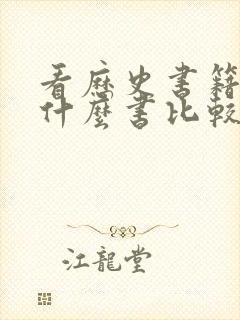 看歷史書籍
什麼書比較
江龍堂